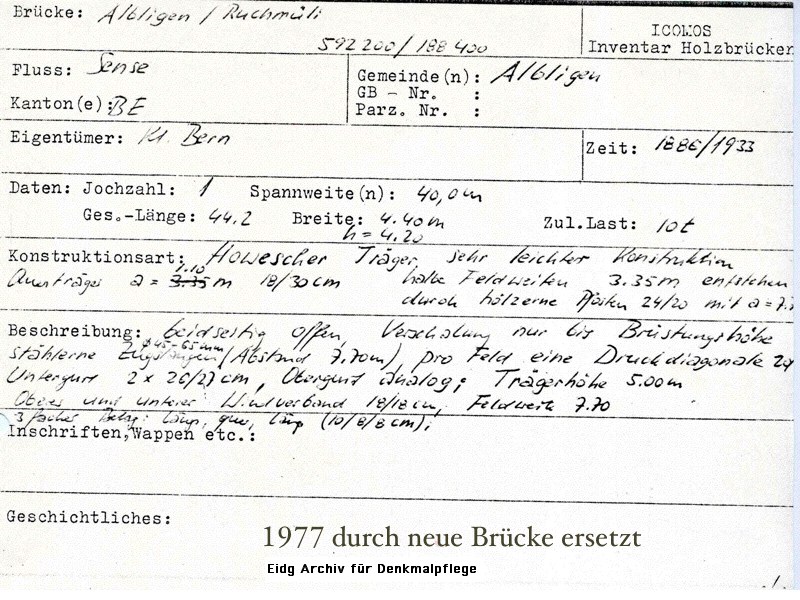 Brücke: Albligen / Ruchmüli
592 200 / 188 400
ICOMOS
Inventar Holzbrücken
Fluss: Sense
Kanton(e): BE
Gemeinde(n): Albligen
GB - Nr. :
Parz. Nr. :
Eigentümer: Kt. Bern
Zeit: 1886/1933
Daten: Jochzahl: 1 Spannweite(n): 40,0m
Ges.-Länge: 44.2 Breite: 4.40m Zul.Last: 10t
h = 4.20
Konstruktionsart: Howescher Träger, sehr leichter Konstruktion
Querträger a = 3.35 1.10 m 18/30cm halbe Feldweiten 3.35m entstehen
durch hölzerne Pfosten 24/20 mit a = 7.7
Beschreibung: beidseitig offen, Verschalung nur bis Brüstungshöhe
stählerne Zugstangen ø 45-65mm (Abstand 7.70m) pro Feld eine Druckdiagonale 24
Untergurt 2 x 26/27cm, Obergurt analog; Trägerhöhe 5.00m
Oberer und unterer Windverband 18/18cm, Feldweite 7.70
3 facher Belag: längs, quer, längs (10/8/8cm);
Inschriften,Wappen etc.:
Geschichtliches:
1977 durch neue Brücke ersetzt
Eidg Archiv für Denkmalpflege